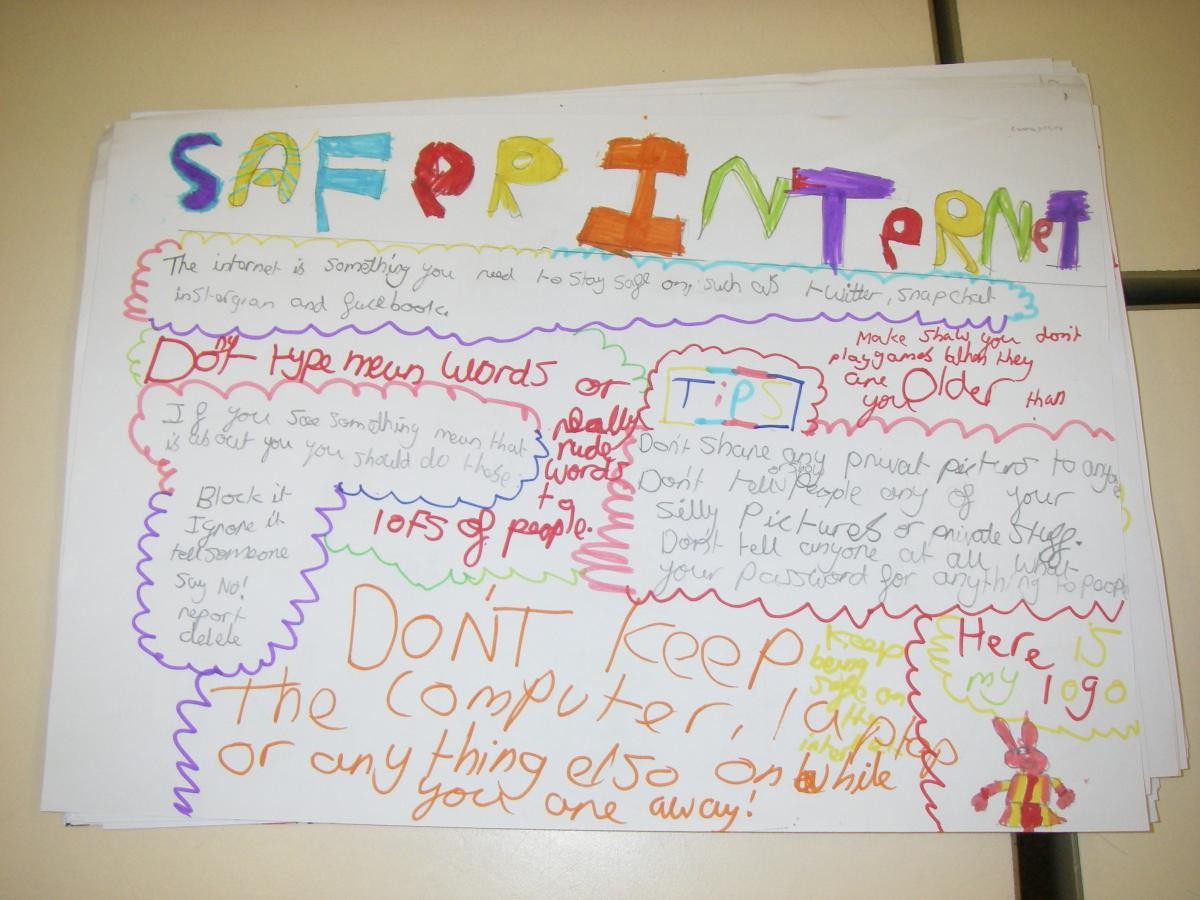 SAFeR INTeRNeT
The internet is something you need to stay safe on, such as twitter, snapchat
instergran and fucebook.
Don't type mean words or
really
rude
words
to
lots of people.
Make shaw you don't
play games when they
are Older than
you
TiPS
If you see something mean that
is about you you should do these:
Block it
Ignore it
tell someone
Say No!
report
delete
Don't Share any privat pictures to
Don't tell or show people any of your
Silly Pictures or private stuff.
Don't tell anyone at all what
your Password for anything to
DON'T Keep
the computer, laptop
or any thing elso on while
you are away!
Keep
being
safe on
the
internet
Here is
my logo